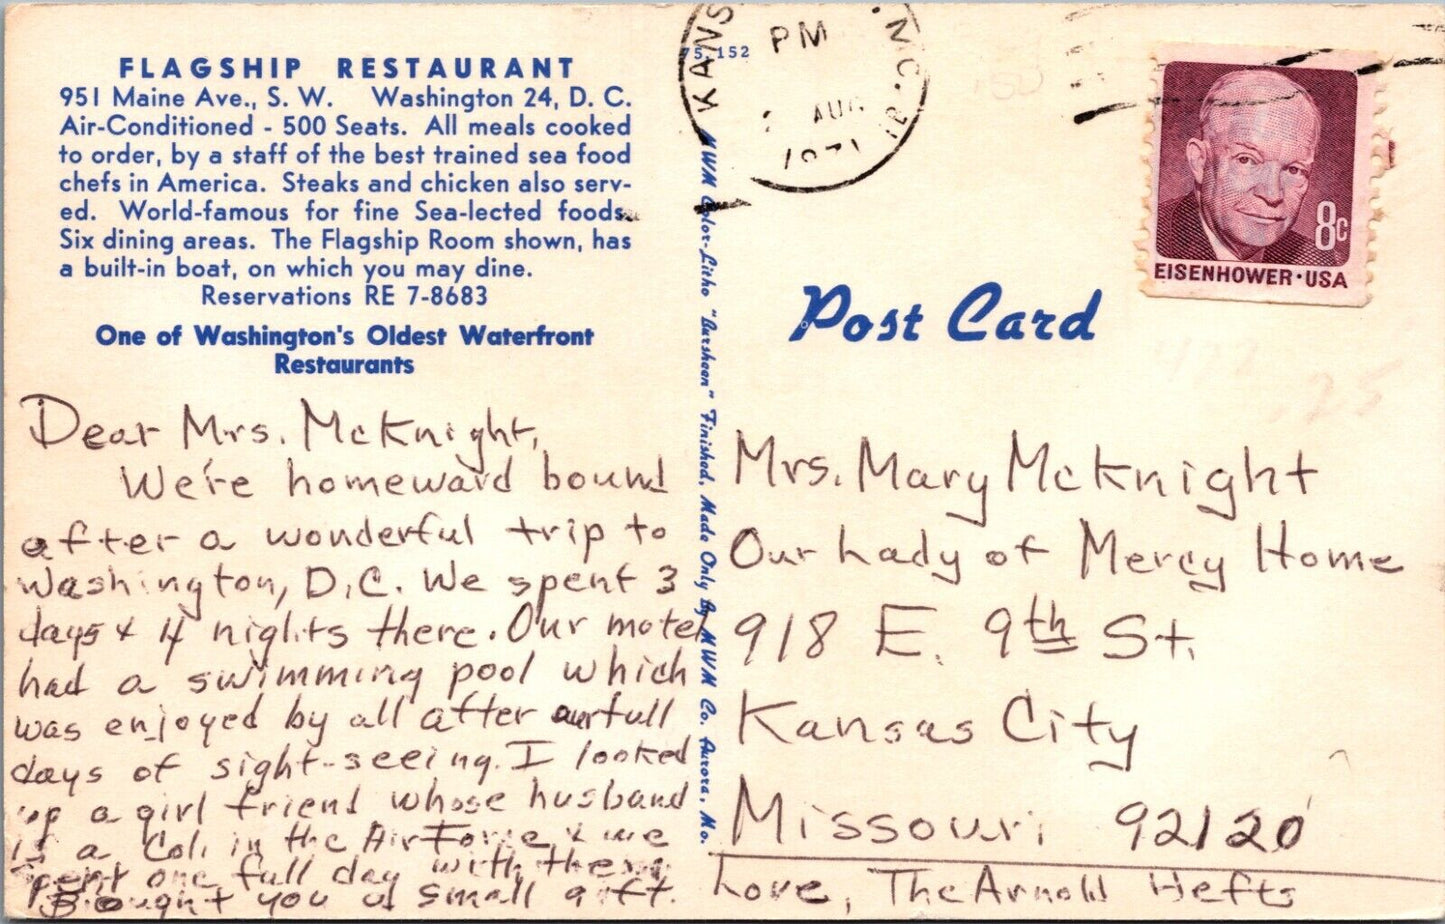 FLAGSHIP RESTAURANT
951 Maine Ave., S. W. Washington 24, D. C.
Air-Conditioned - 500 Seats. All meals cooked
to order, by a staff of the best trained sea food
chefs in America. Steaks and chicken also serv-
ed. World-famous for fine Sea-lected foods.
Six dining areas. The Flagship Room shown, has
a built-in boat, on which you may dine.
Reservations RE 7-8683
One of Washington's Oldest Waterfront
Restaurants
Dear Mrs. McKnight,
We're homeward bound
after a wonderful trip to
Washington, D.C. We spent 3
days & 4 nights there. Our motel
had a swimming pool which
was enjoyed by all after our full
days of sight-seeing. I looked
up a girl friend whose husband
is a Col. in the Air Force & we
spent one full day with them
Brought you a small gift.
75,152
MWM Color-Litho "Bursheen" Finished, Made Only By MWM Co. Aurora, Mo.
KANS
MO.
PM
AUG
1971
Post Card
8c
EISENHOWER·USA
.25
Mrs. Mary McKnight
Our Lady of Mercy Home
918 E. 9th St.
Kansas City
Missouri 92120
Love, The Arnold Hefts